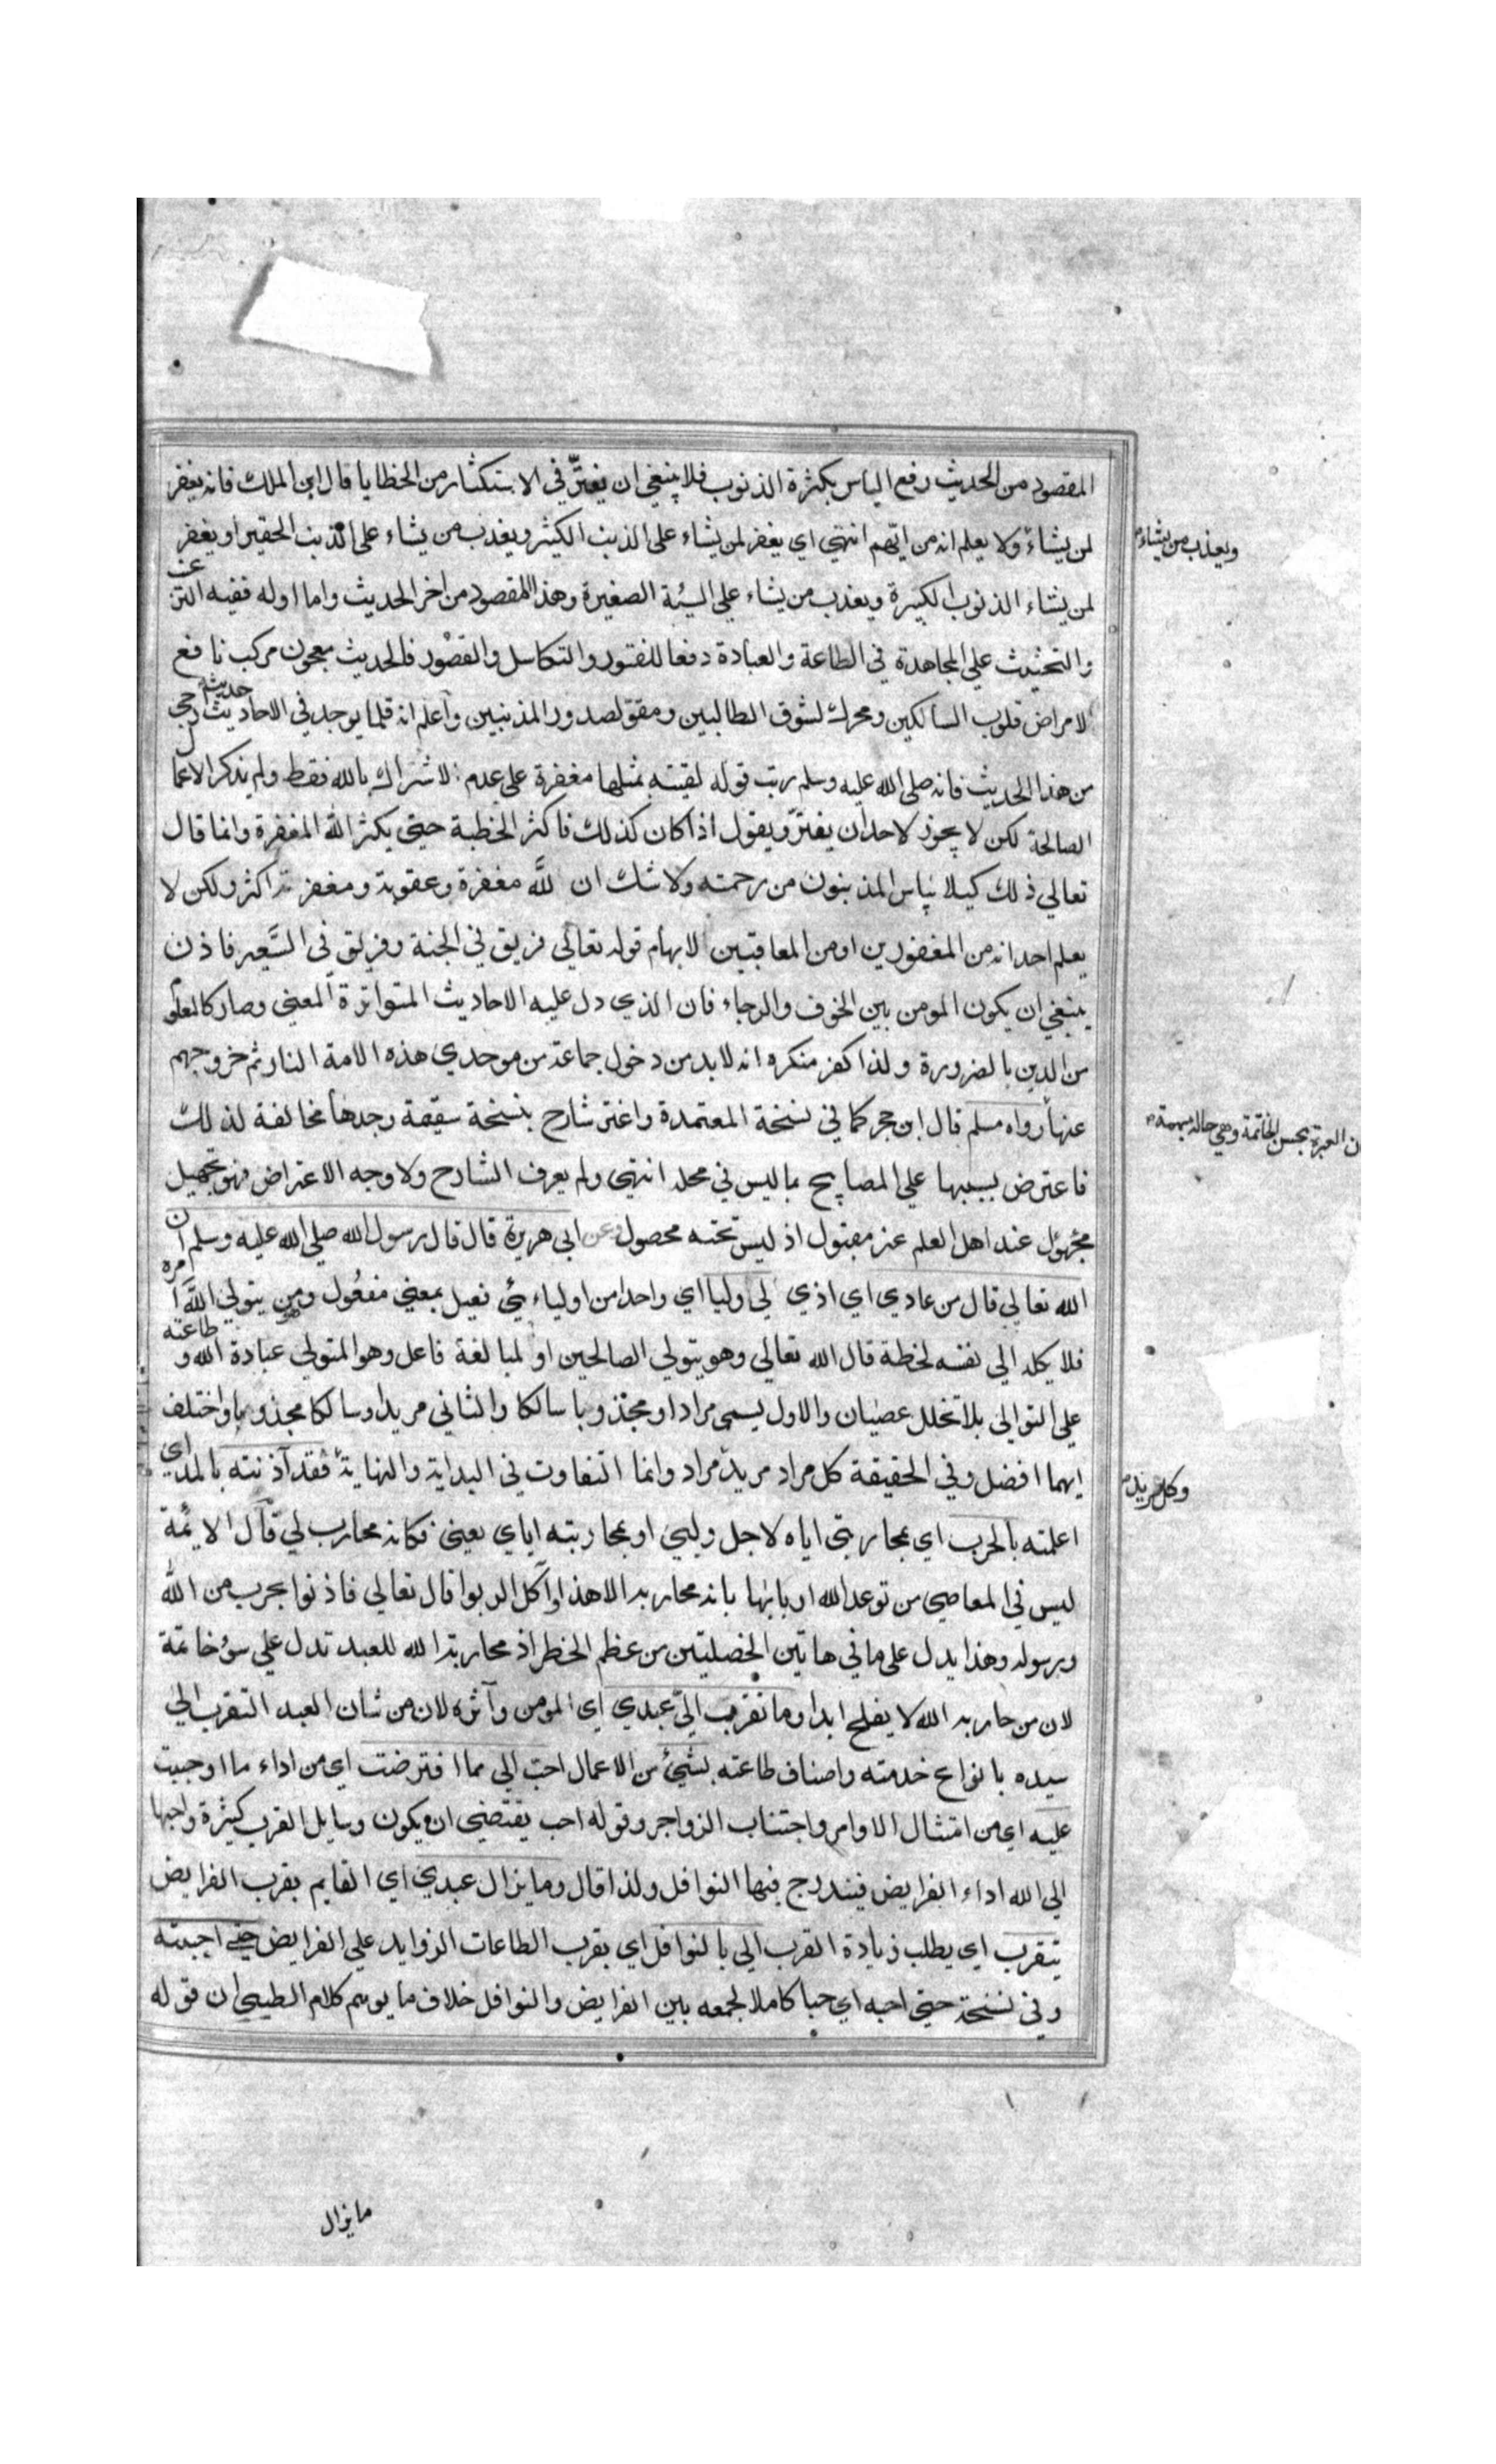 المقصود من الحديث رفع الياس بكثرة الذنوب فلا ينبغي ان يغترّ في الاستكثار من الخطايا قال ابن الملك فانه يغفر
لمن يشاء ولا يعلم انه من ايّهم انتهي اي يغفر لمن يشاء على الذنب الكثير ويعذب من يشاء على الذنب الحقير او يغفر
ويعذب من يشاء
لمن يشاء الذنوب الكبيرة ويعذب من يشاء علي السيئة الصغيرة وهذا المقصود من اخر الحديث واما اوله ففيه الترغيب
والتحثيث علي المجاهدة في الطاعة والعبادة دفعا للفتور والتكاسل والقصور فالحديث معجون مركب نافع
لامراض قلوب السالكين ومحرك لشوق الطالبين ومقو لصدور المذنبين واعلم انه قلما يوجد في الاحاديث حديث ارجي
من هذا الحديث فانه صلى الله عليه وسلم رتب قوله لقيته بمثلها مغفرة على عدم الاشراك بالله فقط ولم يذكر الاعمال
الصالحة لكن لا يجوز لاحد ان يغترّ ويقول اذا كان كذلك فاكثر الخطيئة حيتي يكثر الله المغفرة وانما قال
تعالي ذلك كيلا يياس المذنبون من رحمته ولا شك ان لله مغفرة وعقوبة ومغفرته اكثر ولكن لا
يعلم احد انه من المغفورين او من المعاقبين لابهام قوله تعالى فريق في الجنة وفريق في السَّعير فاذن
ينبغي ان يكون المومن بين الخوف والرجاء فان الذي دل عليه الاحاديث المتواترة المعني وصار كالمعلوم
من الدين بالضرورة ولذا كفر منكره انه لابد من دخول جماعة من موحدي هذه الامة النار ثم خروجهم
عنها رواه مسلم قال ابن حجر كما في نسخة المعتمدة واغتر شارح بنسخة سقيمة وجدها مخالفة لذلك
ن العبرة بحسن الخاتمة وهي حالة مبهمة
فاعترض بسببها علي المصابيح بما ليس في محله انتهي ولم يعرف الشارح ولا وجه الاعتراض فهو تجهيل
مجهول عند اهل العلم غير مقبول اذ ليس تحته محصول وعن ابي هريرة قال قال رسول الله صلي الله عليه وسلم ان
الله تعالي قال من عادي اي اذي لي وليا اي واحدا من اوليائي فعيل بمعني مفعُول وهو من يتولي اللَّه امره
فلا يكله الي نفسه لحظة قال الله تعالي وهو يتولي الصالحين او لمبالغة فاعل وهو المتولي عبادة الله وطاعته
علي التوالي بلا تخلل عصيان والاول يسمى مرادا ومجذوبا سالكا والثاني مريدا وسالكا مجذوبا واختلف
ايهما افضل وفي الحقيقة كل مراد مريد مراد وانما التفاوت في البداية والنهاية فقد آذنته بالمد اي
وكل مريد
اعلمته بالحرب اي بمحاربتي اياه لاجل وليي او بمحاربته اياي يعني فكانه محارب لي قال الايمة
ليس في المعاصي من توعد الله اربابها بانه محاربه الا هذا وآكل الربوا قال تعالي فاذنوا بحرب من الله
ورسوله وهذا يدل على ما في هاتين الخصلتين من عظم الخطر اذ محاربة الله للعبد تدل علي سوء خاتمة
لان من حاربه الله لا يفلح ابدا وما تقرب اليّ عبدي اي المومن وآثره لان من شان العبد التقرب الي
سيده بانواع خدمته واصناف طاعته بشيئ من الاعمال احبّ الي مما افترضت اي من اداء ما اوجبت
عليه اي من امتثال الاوامر واجتناب الزواجر وقوله احب يقتضي ان يكون وسايل القرب كثيرة واحبها
الي الله اداء الفرايض فيندرج فيها النوافل ولذا قال وما يزال عبدي اي القايم بقرب الفرايض
يتقرب اي يطلب زيادة القرب الي بالنوافل اي بقرب الطاعات الزوايد علي الفرايض حتي احببته
وفي نسخة حيتي احبه اي حبا كاملا لجمعه بين الفرايض والنوافل خلاف ما يوهم كلام الطيبي ان قوله
ما يزال